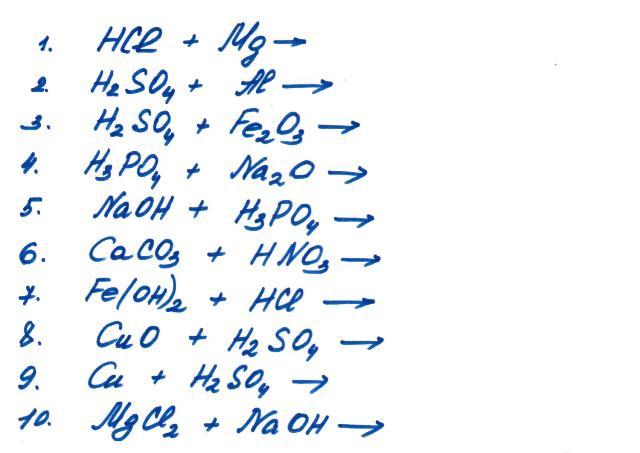 1. HCl + Mg →
2. H₂SO₄ + Al →
3. H₂SO₄ + Fe₂O₃ →
4. H₃PO₄ + Na₂O →
5. NaOH + H₃PO₄ →
6. CaCO₃ + HNO₃ →
7. Fe(OH)₂ + HCl →
8. CuO + H₂SO₄ →
9. Cu + H₂SO₄ →
10. MgCl₂ + NaOH →